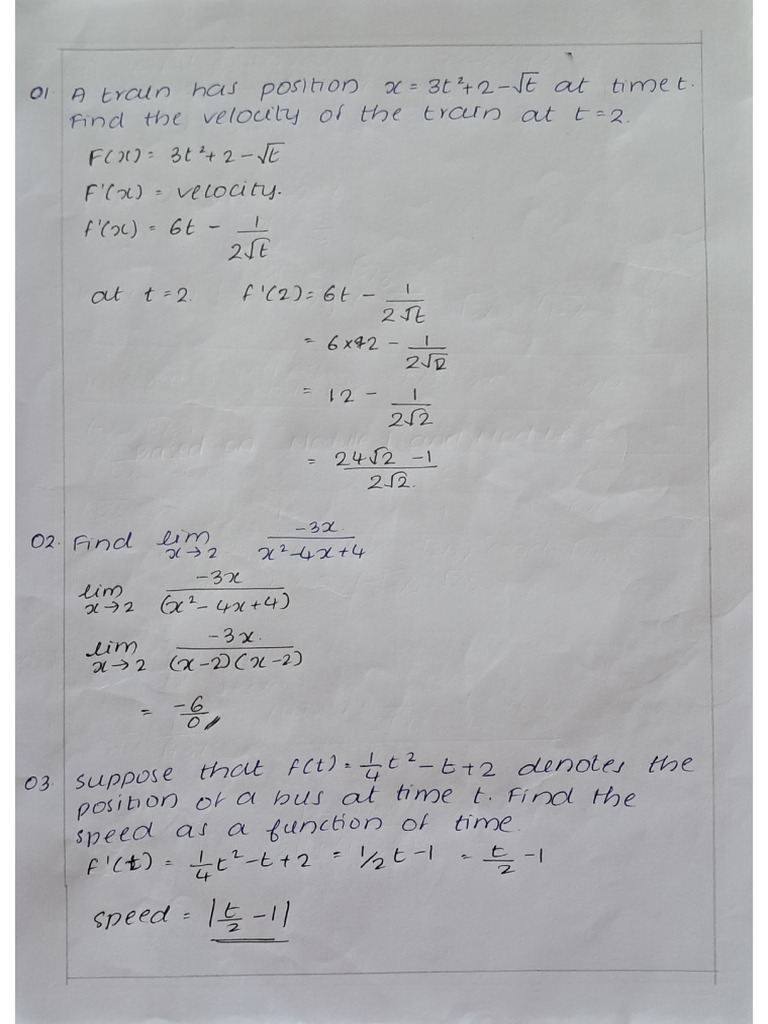 01. A train has position x = 3t² + 2 - √t at time t.
Find the velocity of the train at t = 2.
F(x) = 3t² + 2 - √t
F'(x) = velocity.
f'(x) = 6t - 1/(2√t)
at t = 2. f'(2) = 6t - 1/(2√t)
= 6×2 - 1/(2√2)
= 12 - 1/(2√2)
= (24√2 - 1)/(2√2).
02. Find lim x→2 -3x/(x² - 4x + 4)
lim x→2 -3x/(x² - 4x + 4)
lim x→2 -3x/((x-2)(x-2))
= -6/0
03. suppose that f(t) = 1/4 t² - t + 2 denotes the
position of a bus at time t. Find the
speed as a function of time.
f'(t) = 1/4 t² - t + 2 = 1/2 t - 1 = t/2 - 1
speed = |t/2 - 1|